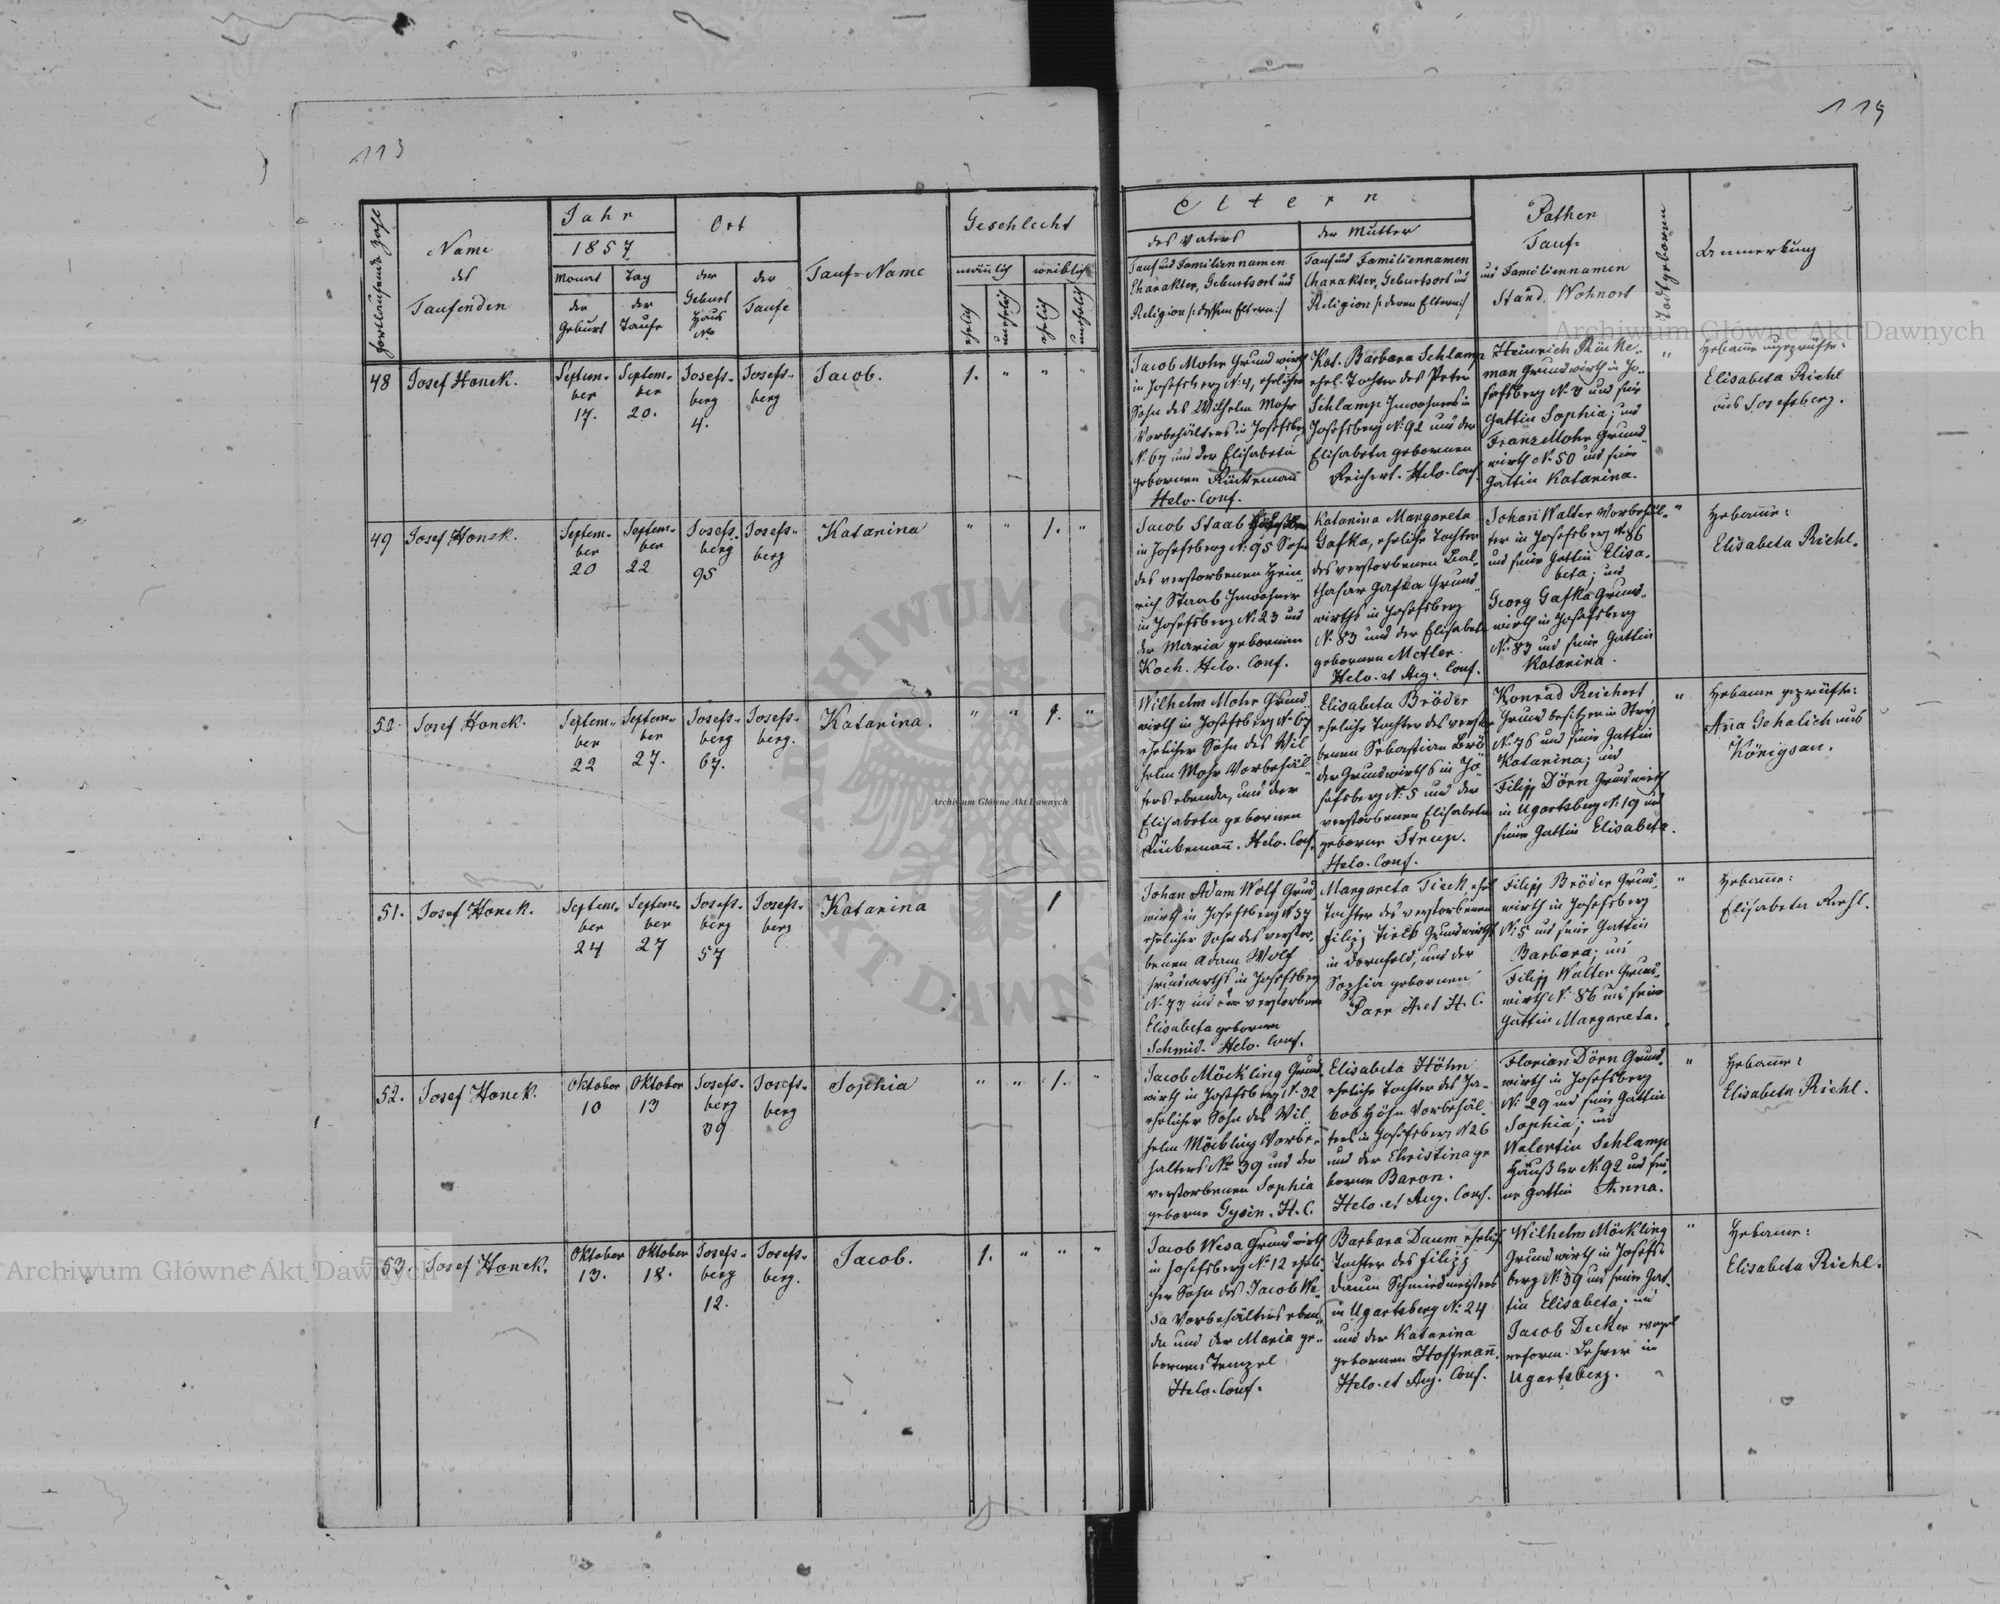 113
119
fortlaufende Zahl
Name
des
Taufenden
Jahr
1857
Monat
der
Geburt
Tag
der
Taufe
Ort
der
Geburt
Haus
No
der
Taufe
Tauf=Name
Geschlecht
männlich
weiblich
ehelich
unehelich
ehelich
unehelich
Eltern
des Vaters
Tauf und Familiennamen
Charakter, Geburtsort und
Religion /: dessen Eltern:/
der Mutter
Tauf und Familiennamen
Charakter, Geburtsort und
Religion /: deren Eltern:/
Pathen
Tauf=
und Familiennamen
Stand, Wohnort
Todtgeboren
Anmerkung
48
Josef Honek.
Septem-
ber
17.
Septem-
ber
20.
Josefs-
berg
4.
Josefs-
berg
Jacob.
1. " " "
Jacob Mohr Grundwirth
in Josefsberg N. 4, ehelicher
Sohn des Wilhelm Mohr
Vorbehälters in Josefsberg
N. 67 und der Elisabeta
gebornen Rückemann
Helv. Conf.
Kat. Barbara Schlamp
ehel. Tochter des Peter
Schlamp Inwohners in
Josefsberg N. 92 und der
Elisabeta gebornen
Reichert. Helv. Conf.
Heinrich Rücke-
man Grundwirth in Jo-
sefsberg N. 7 und seine
Gattin Sophia; und
Franz Mohr Grund-
wirth N. 50 und seine
Gattin Katarina.
"
Hebamme ungeprüfte:
Elisabeta Riehl
aus Josefsberg.
49
Josef Honek.
Septem-
ber
20
Septem-
ber
22
Josefs-
berg
95
Josefs-
berg
Katarina
" " 1. "
Jacob Staab
in Josefsberg N. 95 Sohn
des verstorbenen Hein-
rich Staab Inwohner
in Josefsberg N. 23 und
der Maria gebornen
Koch. Helv. Conf.
Katarina Margareta
Gafka, eheliche Tochter
des verstorbenen Bal-
thasar Gafka Grund-
wirths in Josefsberg
N. 83 und der Elisabeta
gebornen Metler.
Helv. et Aug. Conf.
Johan Walter Vorbehäl-
ter in Josefsberg N. 86
und seine Gattin Elisa-
beta; und
Georg Gafka Grund-
wirth in Josefsberg
N. 83 und seine Gattin
Katarina.
"
Hebamme:
Elisabeta Riehl.
50.
Josef Honek.
Septem-
ber
22
Septem-
ber
27.
Josefs-
berg
67.
Josefs-
berg.
Katarina.
" " 1. "
Wilhelm Mohr Grund-
wirth in Josefsberg N. 67
ehelicher Sohn des Wil
helm Mohr Vorbehäl-
ters ebenda, und der
Elisabeta gebornen
Rückemann. Helv. Conf.
Elisabeta Bröder
eheliche Tochter des verstor
benen Sebastian Brö
der Grundwirths in Jo
sefsberg N. 5 und der
verstorbenen Elisabeta
geborne Strup.
Helv. Conf.
Konrad Reichert
Grundbesitzer in Stryj
N. 76 und seine Gattin
Katarina; und
Filipp Dörn Grundwirth
in Ugartsberg N. 19 und
seine Gattin Elisabeta.
"
Hebamme geprüfte:
Anna Gehalich aus
Königsau.
51.
Josef Honek.
Septem-
ber
24
Septem-
ber
27
Josefs-
berg
57
Josefs-
berg
Katarina
1
Johan Adam Wolf Grund-
wirth in Josefsberg N. 57
ehelicher Sohn des verstor-
benen Adam Wolf
Grundwirths in Josefsberg
N. 73 und der verstorbenen
Elisabeta gebornen
Schmid. Helv. Conf.
Margareta Tieck, ehel
Tochter des verstorbenen
Filipp Tieck Grundwirths
in Dornfeld, und der
Sophia gebornen
Parr A. et H. C.
Filipp Bröder Grund-
wirth in Josefsberg
N. 5 und seine Gattin
Barbara; und
Filipp Walter Grund-
wirth N. 86 und seine
Gattin Margareta.
"
Hebamme:
Elisabeta Riehl.
52.
Josef Honek.
Oktober
10
Oktober
13
Josefs-
berg
39
Josefs-
berg
Sophia
" " 1. "
Jacob Möckling Grund
wirth in Josefsberg N. 32
ehelicher Sohn des Wil-
helm Möckling Vorbe-
halters No 39 und der
verstorbenen Sophia
geborne Gysin. H. C.
Elisabeta Höhn
eheliche Tochter des Ja-
kob Höhn Vorbehäl-
ters in Josefsberg N 26
und der Christina ge
borne Baron.
Helv. et Aug. Conf.
Florian Dörn Grund-
wirth in Josefsberg
N. 29 und seine Gattin
Sophia; und
Walentin Schlamp
Häußler N. 92 und sei-
ne Gattin Anna.
"
Hebamme:
Elisabeta Riehl.
53.
Josef Honek.
Oktober
13.
Oktober
18.
Josefs-
berg
12.
Josefs-
berg.
Jacob.
1. " " "
Jacob Wesa Grundwirth
in Josefsberg No 12 eheli-
cher Sohn des Jacob We-
sa Vorbehälters eben-
da und der Maria ge-
bornen Tempel
Helv. Conf.
Barbara Daum ehelich
Tochter des Filipp
Daum Schmiedmeisters
in Ugartsberg N. 24
und der Katarina
gebornen Hoffmann.
Helv. et Aug. Conf.
Wilhelm Möckling
Grundwirth in Josefs-
berg N. 39 und seine Gat-
tin Elisabeta; und
Jacob Decker evgel
reform. Lehrer in
Ugartsberg.
"
Hebamme:
Elisabeta Riehl.
Archiwum Główne Akt Dawnych
Archiwum Główne Akt Dawnych
Archiwum Główne Akt Dawnych